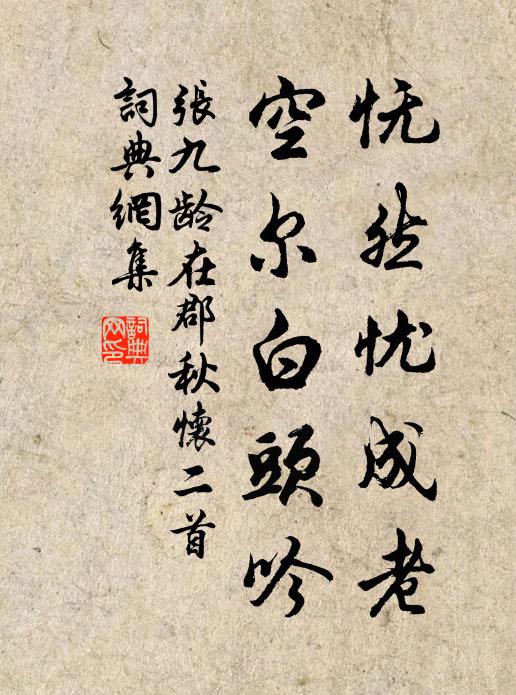 怃然忧成老
空尔白頭吟
張九龄在郡秋懷二首
詞典網集
詞典网印